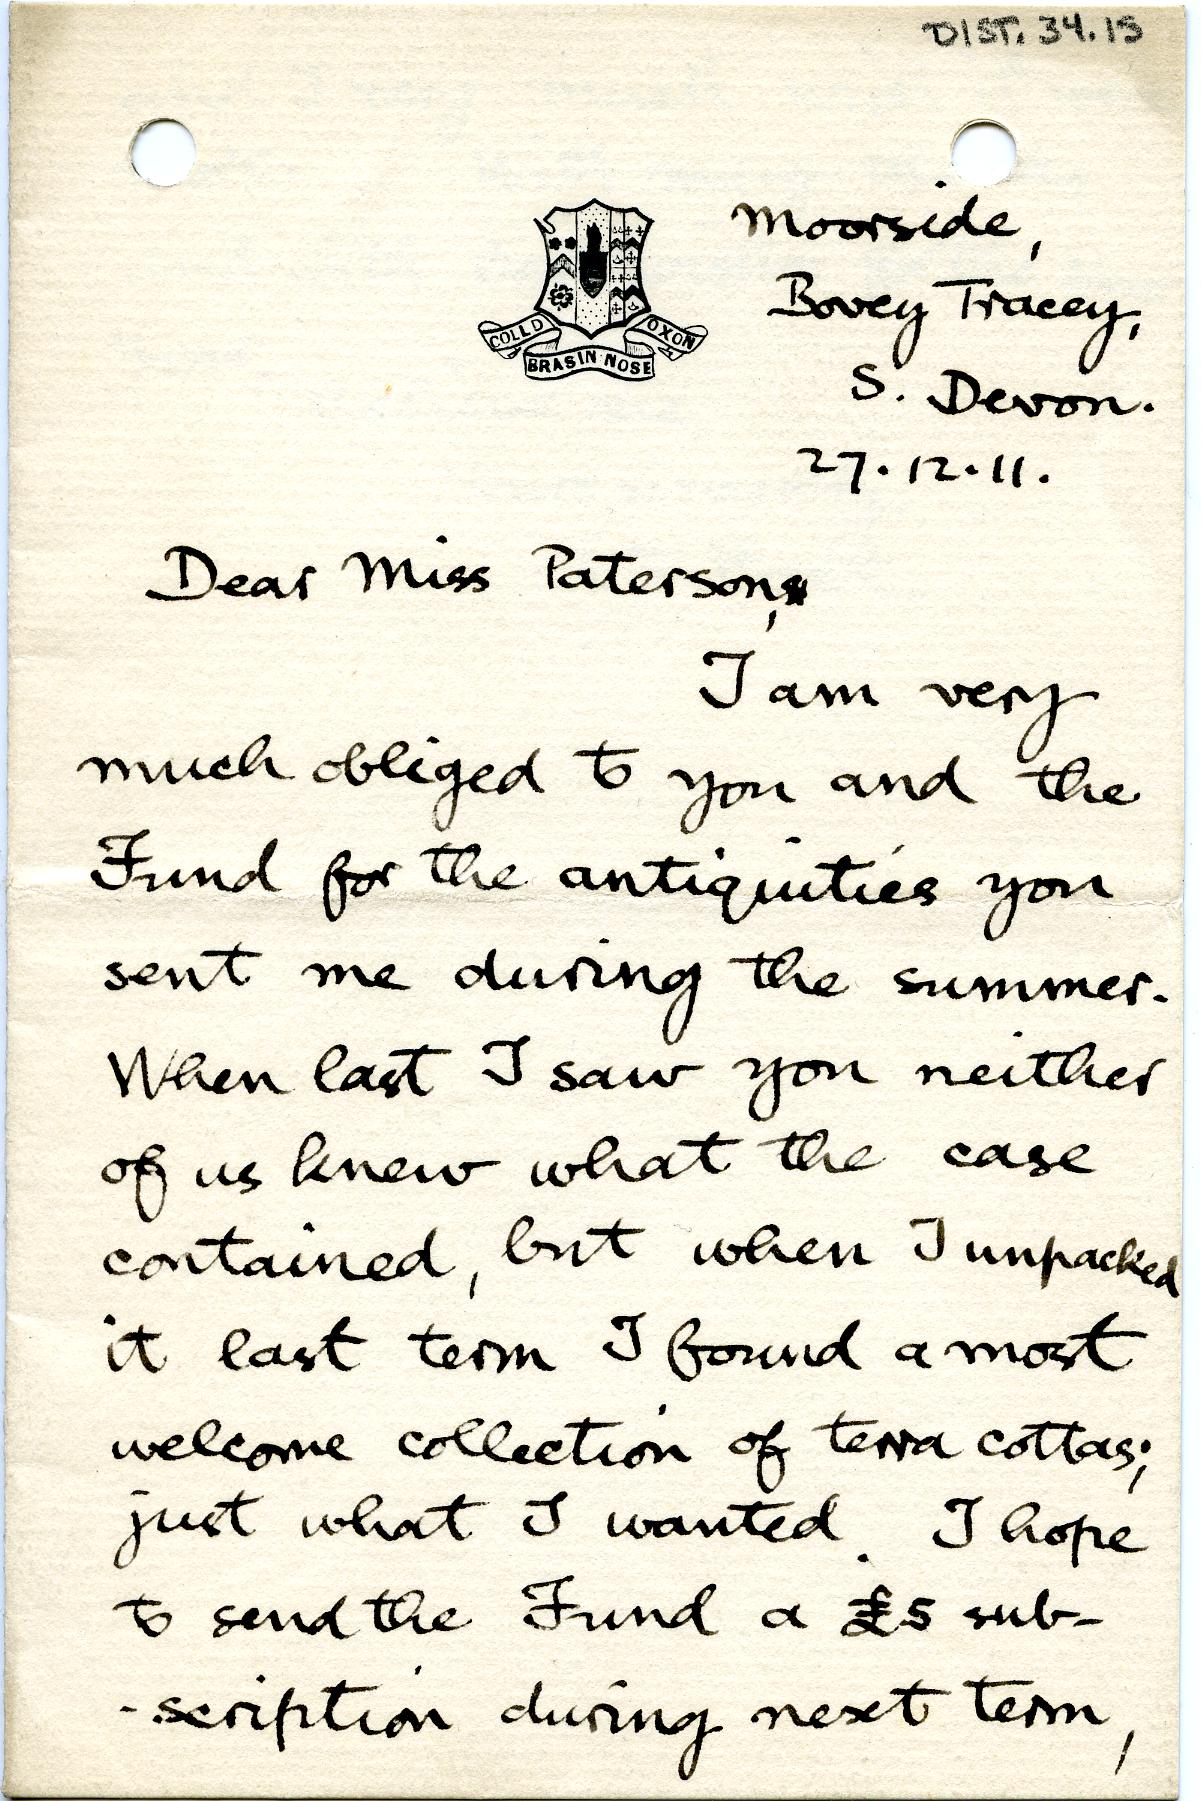 DIST. 34.15
Moorside,
Bovey Tracey,
S. Devon.
27.12.11.
COLL D OXON
BRASIN NOSE
Dear Miss Paterson,
I am very
much obliged to you and the
Fund for the antiquities you
sent me during the summer.
When last I saw you neither
of us knew what the case
contained, but when I unpacked
it last term I found a most
welcome collection of terra cottas;
just what I wanted. I hope
to send the Fund a £5 sub-
-scription during next term,